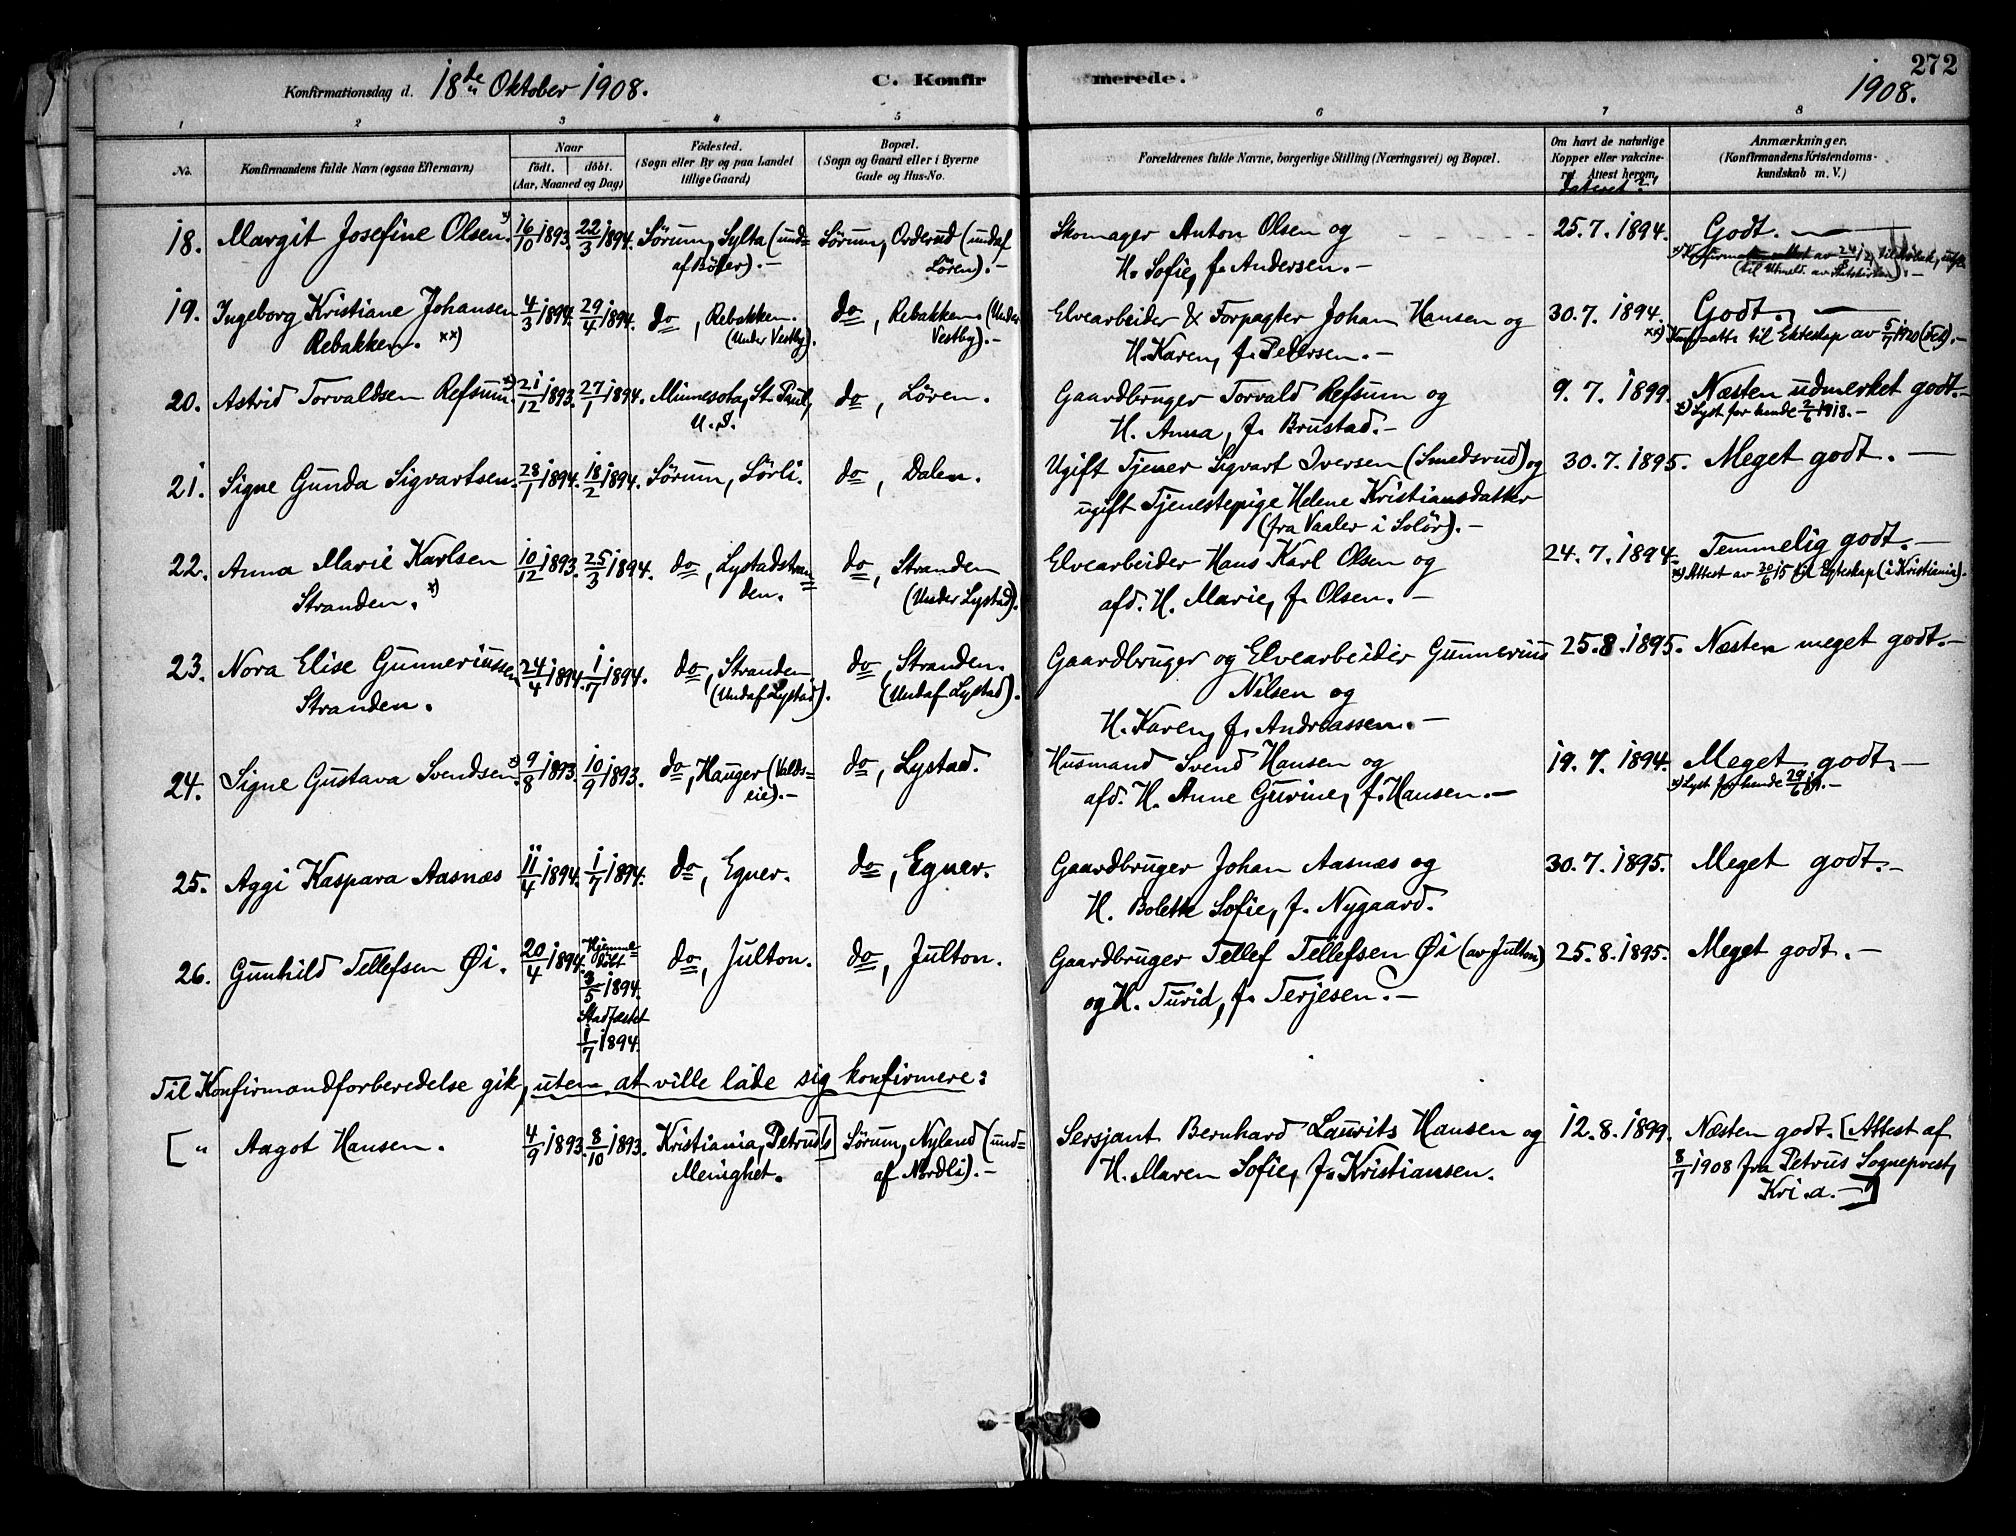 272
Konfirmationsdag d. 18de Oktober 1908. C. Konfir merede. 1908.
1 2 3 4 5 6 7 8
No. Konfirmandens fulde Navn (ogsaa Efternavn) Naar født. døbt. (Aar, Maaned og Dag) Fødested. (Sogn eller By og paa Landet tillige Gaard) Bopæl. (Sogn og Gaard eller i Byerne Gade og Hus-No. Forældrenes fulde Navne, borgerlige Stilling (Næringsvei) og Bopæl. Om havt de naturlige Kopper eller vakcineret. Attest herom, dateret? Anmærkninger. (Konfirmandens Kristendomskundskab m. V.)
18. Margit Josefine Olsen. x) 16/10 1893. 22/3 1894. Sörum, Sylta (und- Sörum, Orderud (undaf Skomager Anton Olsen og 25.7.1894. Godt. —
af Böler). — Lören). — H. Sofie, f. Andersen. —
19. Ingeborg Kristiane Johansen 4/3 1894. 29/4 1894. do, Rebakken. do, Rebakken. (Under Elvearbeider & Forpagter Johan Hansen og 30.7.1894. Godt. —
Rebakken. xx) (Under Vestby). Vestby). — H. Karen, f. Pedersen. — xx) Konf-atts til Ekteskap av 5/7 1920
20. Astrid Torvaldsen Refsum. x) 21/12 1893. 27/1 1894. Minnesota, St. Paul, do, Lören. Gaardbruger Torvald Refsum og 9.7.1899. Næsten udmerket godt. —
U.S. H. Anna, f. Brustad. — x) Lyst for hende 2/6 1918. —
21. Signe Gunda Sigvartsen. 28/1 1894. 18/2 1894. Sörum, Sörli. do, Dalen. Ugift Tjener Sigvart Iversen (Smedsrud) og 30.7.1895. Meget godt. —
ugift Tjenestepige Helene Kristiansdatter
(fra Vaaler i Solör). —
22. Anna Marie Karlsen 10/12 1893. 25/3 1894. do, Lystadstran- do, Stranden Elvearbeider Hans Karl Olsen og 24.7.1894. Temmelig godt. —
Stranden. x) den. (Under Lystad). afd. H. Marie, f. Olsen. — x) Attest av 30/6 15 til Egteskap (i Kristiania).
23. Nora Elise Gunneriussen 24/4 1894. 1/7 1894. do, Stranden. do, Stranden. Gaardbruger og Elvearbeider Gunnerius 25.8.1895. Næsten meget godt. —
Stranden. (Undaf Lystad). (Undaf Lystad). Nilsen og
H. Karen, f. Andreassen. —
24. Signe Gustava Svendsen. x) 9/8 1893. 10/9 1893. do, Hauger (Valds- do, Lystad. Husmand Svend Hansen og 19.7.1894. Meget godt. —
eie). — afd. H. Anne Gurine, f. Hansen. — x) Lyst for hende 29/6
25. Aggi Kaspara Aasnæs 11/4 1894. 1/7 1894. do, Egner. do, Egner. Gaardbruger Johan Aasnæs og 30.7.1895. Meget godt. —
H. Bolette Sofie, f. Nygaard.
26. Gunhild Tellefsen Øi. 20/4 1894. Hjemmedöbt 3/5 1894. Stadfæstet 1/7 1894. do, Julton. do, Julton. Gaardbruger Tellef Tellefsen Øi (av Julton) 25.8.1895. Meget godt. —
og H. Turid, f. Terjesen. —
Til Konfirmandforberedelse gik, uten at ville lade sig konfirmere:
[ " Aagot Hansen. 4/9 1893. 8/10 1893. Kristiania, Petrus's] Sörum, Nyland (und- Sersjant Bernhard Laurits Hansen og 12.8.1899. Næsten godt. [Attest af
Menighet. af Nordli). — H. Maren Sofie, f. Kristiansen. 8/7 1908 fra Petrus Sogneprest,
Kri.a. —]